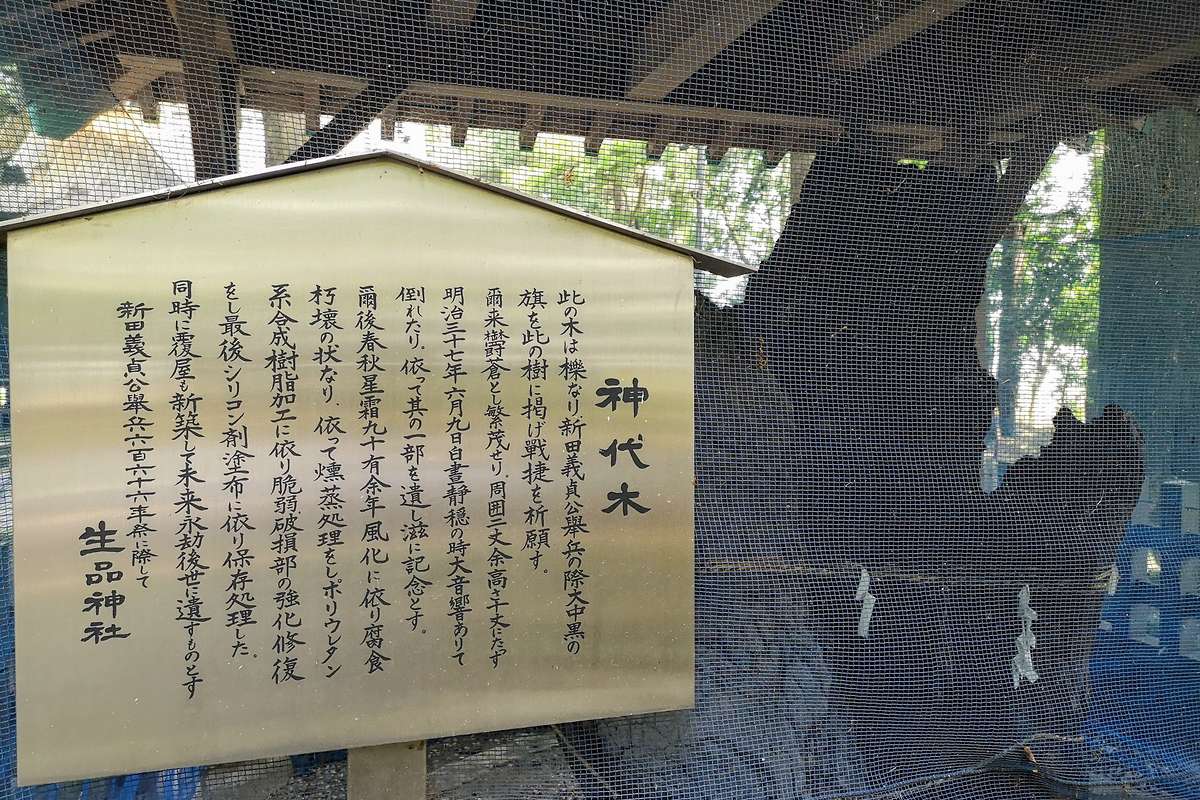 神代木
此の木は櫟なり、新田義貞公舉兵の際大中黒の
旗を此の樹に掲げ戰捷を祈願す。
爾来欝蒼とし繁茂せり、周囲二丈余高さ十丈にたす
明治三十七年六月九日白晝静穏の時大音響ありて
倒れたり、依って其の一部を遺し滋に記念とす。
爾後春秋星霜九十有余年風化に依り腐食
朽壊の状なり、依って燻蒸処理をしポリウレタン
系合成樹脂加工に依り脆弱破損部の強化修復
をし最後シリコン剤塗布に依り保存処理した。
同時に覆屋も新築して未来永劫後世に遺すものとす
新田義貞公舉兵六百六十六年祭に際して
生品神社